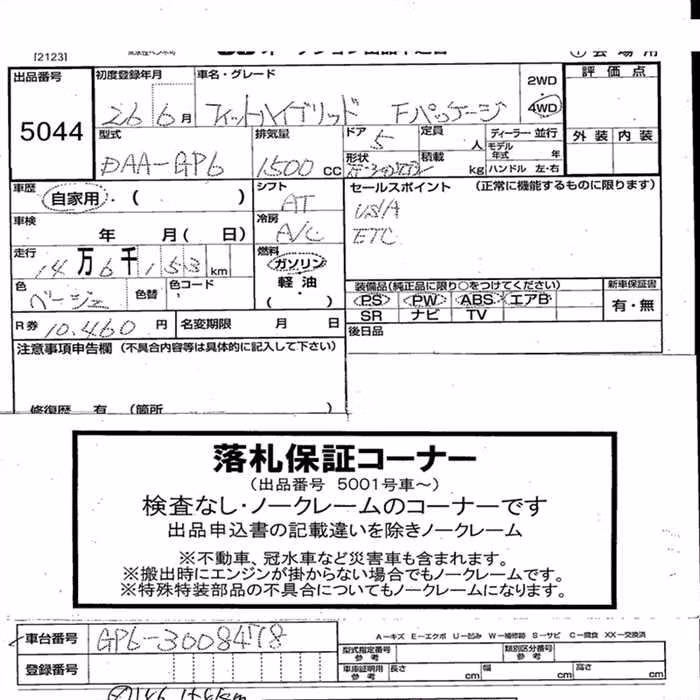 [2123]
出品番号 初度登録年月 車名・グレード 2WD 4WD 評価点
5044 26 6月 フィットハイブリッド Fパッケージ
型式 排気量 ドア 定員 ディーラー 並行 外装 内装
DAA-GP6 1500 cc 5 人 モデル年式 年
形状 積載 kg ハンドル 左・右
車歴 自家用・( ) シフト AT セールスポイント (正常に機能するものに限ります)
車検 年 月( 日) 冷房 A/C USA
ETC
走行 14万6千153km 燃料 ガソリン 軽油 ( )
色 ベージュ 色替 色コード
装備品(純正品に限り○をつけてください) 新車保証書
PS PW ABS エアB 有・無
SR ナビ TV
R券 10,460 円 名変期限 月 日 後日品
注意事項申告欄 (不具合内容等は具体的に記入して下さい)
修復歴 有 (箇所 )
落札保証コーナー
(出品番号 5001号車~)
検査なし・ノークレームのコーナーです
出品申込書の記載違いを除きノークレーム
※不動車、冠水車など災害車も含まれます。
※搬出時にエンジンが掛からない場合でもノークレームです。
※特殊特装部品の不具合についてもノークレームになります。
車台番号 GP6-3008478
A-キズ E-エクボ U-凹み W-補修跡 S-サビ C-腐食 XX-交換済
型式指定番号 参考 類別区分番号 参考
登録番号 車庫証明用 参考 長さ cm 幅 cm 高さ cm